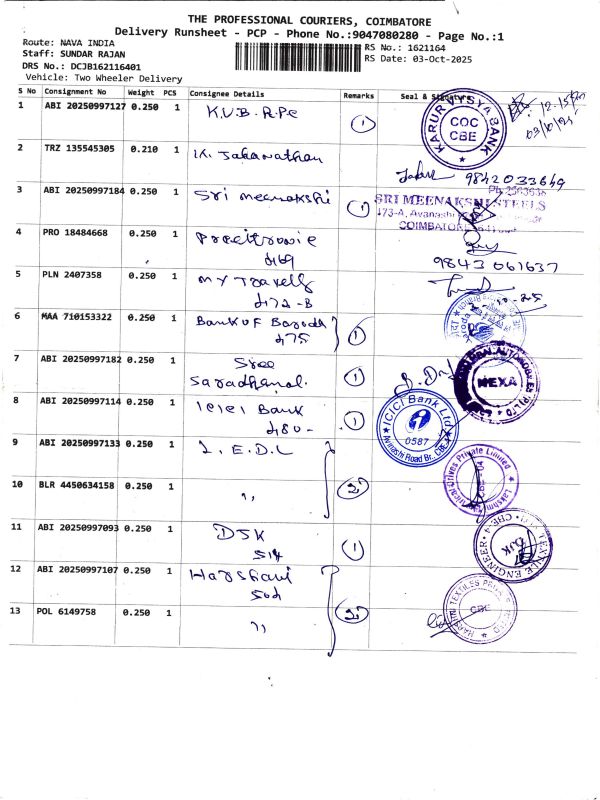 THE PROFESSIONAL COURIERS, COIMBATORE
Delivery Runsheet - PCP - Phone No.:9047080280 - Page No.:1
Route: NAVA INDIA
Staff: SUNDAR RAJAN
DRS No.: DCJB162116401
Vehicle: Two Wheeler Delivery
RS No.: 1621164
RS Date: 03-Oct-2025
S No Consignment No Weight PCS Consignee Details Remarks Seal & Signature
1 ABI 20250997127 0.250 1 K.V.B. RPC 1 KARUR VYSYA BANK COC CBE 12.15
03/10/25
2 TRZ 135545305 0.210 1 K. Jaganathan 9842033649
3 ABI 20250997184 0.250 1 Sri meenakshi 1 SRI MEENAKSHI STEELS
173-A, Avanashi
COIMBATORE
4 PRO 18484668 0.250 1 469
9843061637
5 PLN 2407358 0.250 1 My Travells
472-B
6 MAA 710153322 0.250 1 Bank of Baroda 1
475
7 ABI 20250997182 0.250 1 Sree 1 NEXA
Saradhambal.
8 ABI 20250997114 0.250 1 ICICI Bank 1 ICICI Bank Ltd 0587 Avinashi Road Br., CBE
480-
9 ABI 20250997133 0.250 1 L.E.D.L Lakshmi Electrical Drives Private Limited CBE-04
10 BLR 4450634158 0.250 1 ,, 2
11 ABI 20250997093 0.250 1 DJK 1 TEXTILE ENGINEER CBE-4 DJK
514
12 ABI 20250997107 0.250 1 Harshani
502
13 POL 6149758 0.250 1 ,, 2 TEXTILES CBE